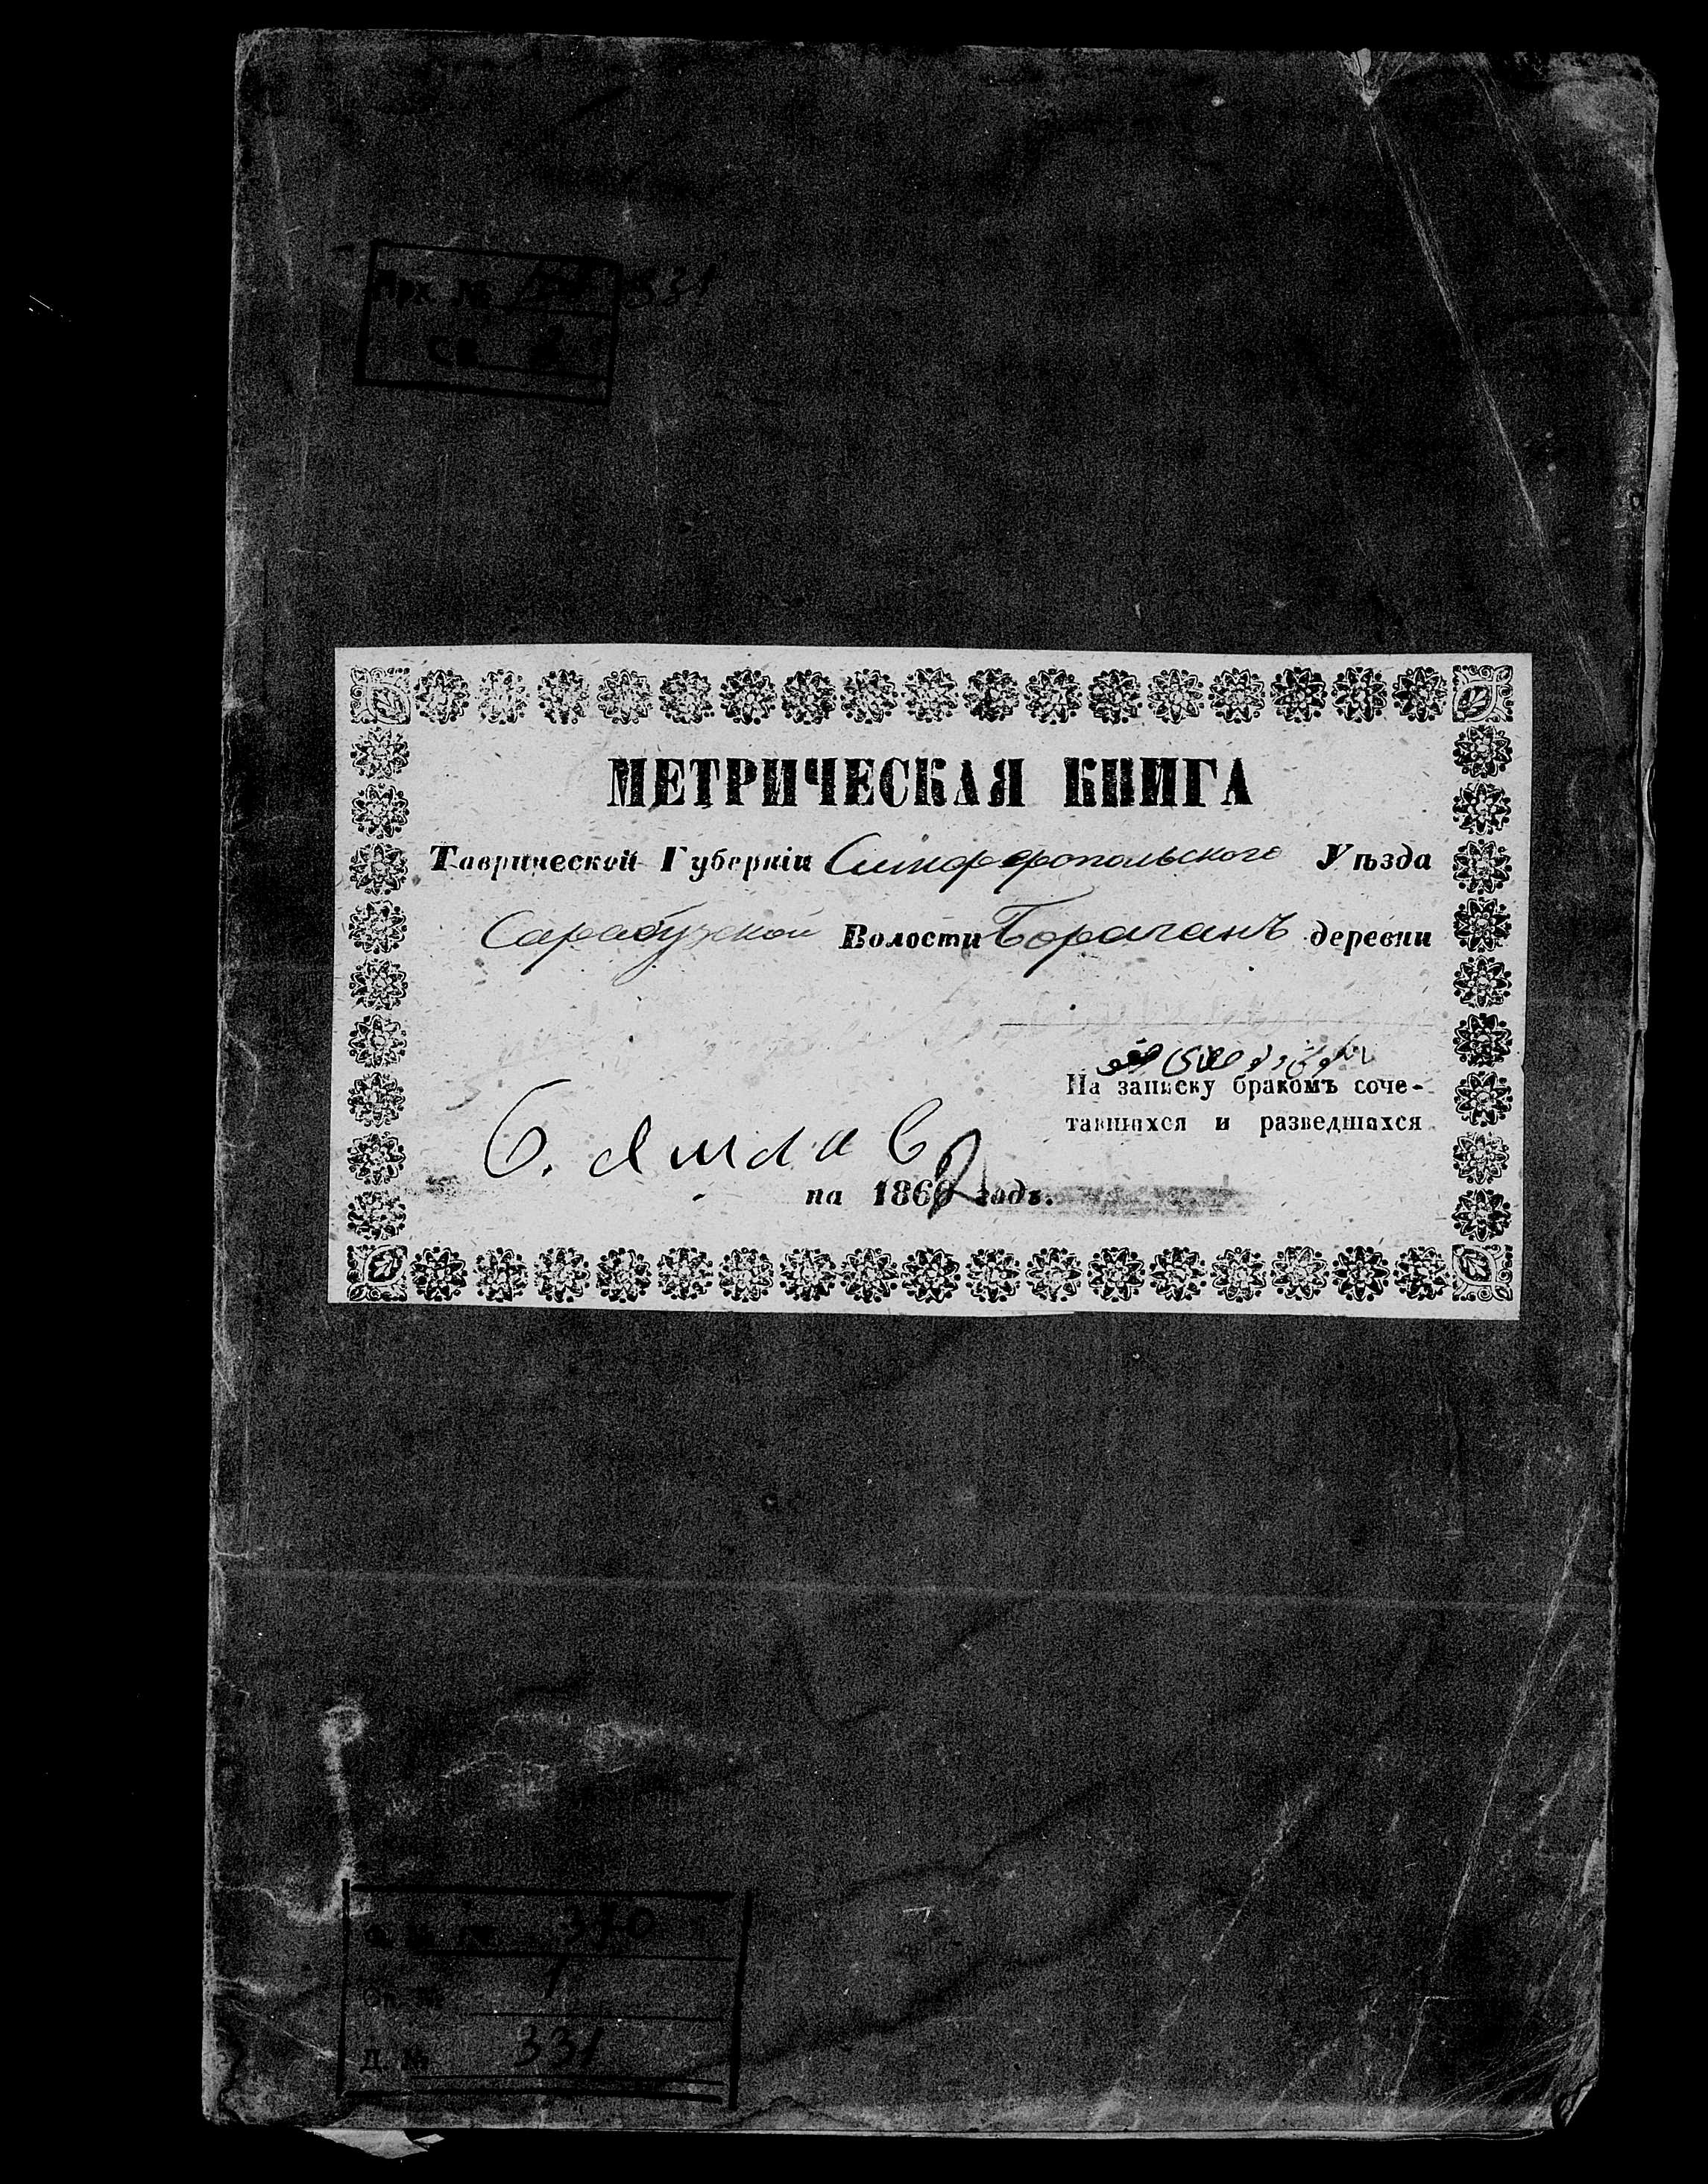 Арх. № 331
Св. 2
МЕТРИЧЕСКАЯ КНИГА
Таврической Губерніи Симферопольского Уѣзда
Сарабузской Волости Борачанъ деревни
На записку бракомъ соче-
тавшихся и разведшихся
на 1862 годъ.
370
Оп. № 1
Д. № 331